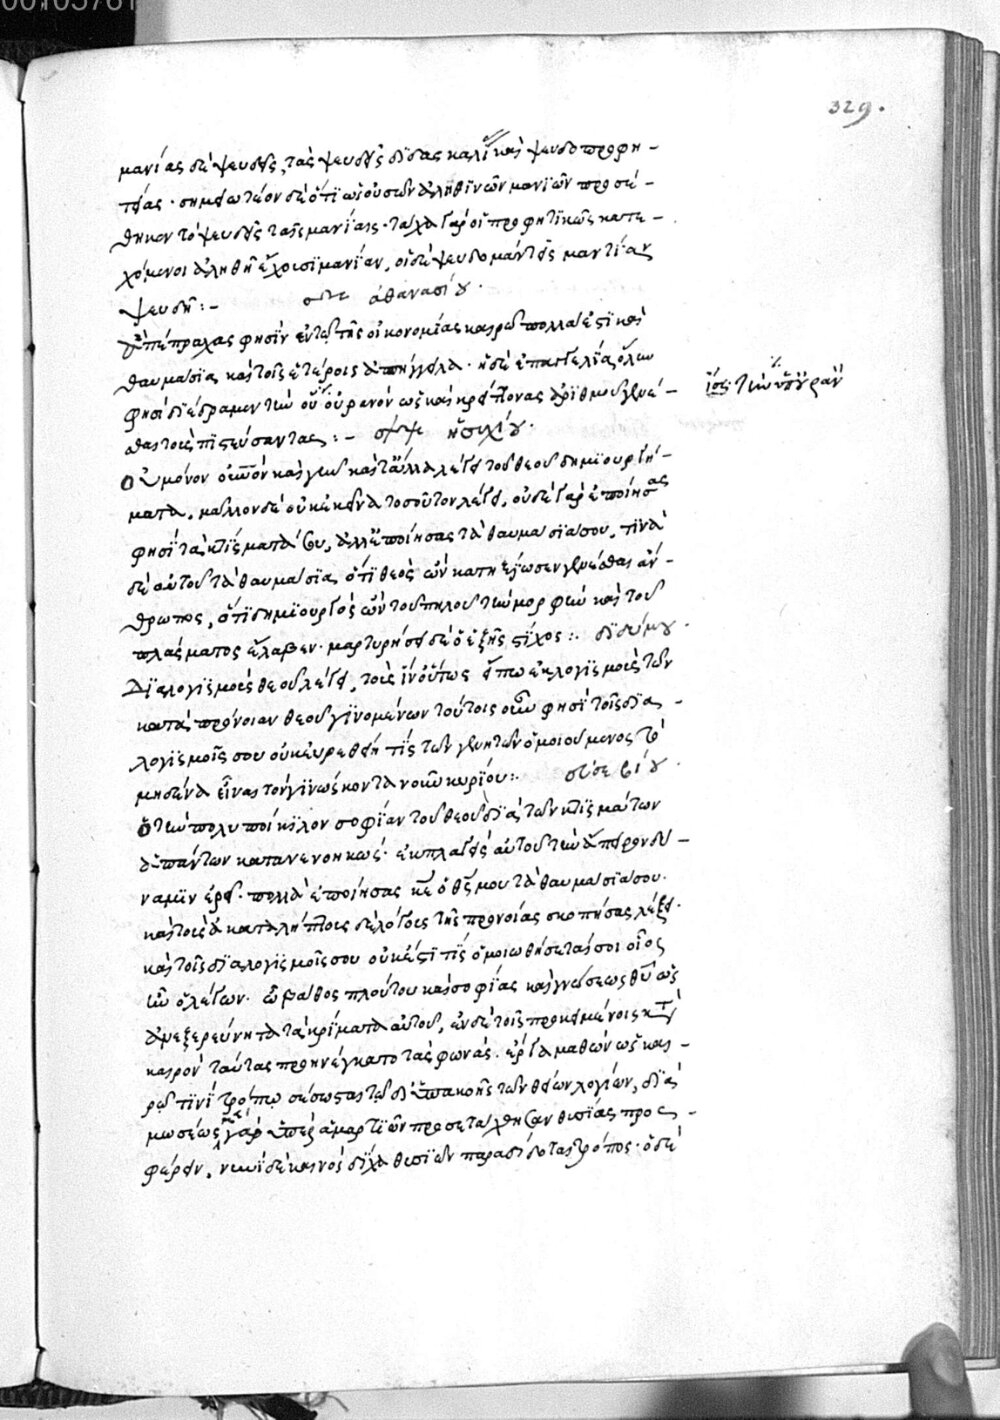 00105761
329.
μανίας δὲ ψευδεῖς, τὰς ψευδεῖς δόξας καλεῖ καὶ ψευδοπροφη-
τείας. σημειωτέον δὲ ὅτι ὡς οὐσῶν ἀληθινῶν μανιῶν προσέ-
θηκεν τὸ ψευδεῖς ταῖς μανίαις. τάχα γὰρ οἱ προφητικῶς κατε-
χόμενοι ἀληθῆ ἔχουσι μανίαν, οἱ δὲ ψευδομάντεις μαντείαν
ψευδῆ:- ἀθανασίου.
ἃ πέπραχας φησὶν ἐν τῶ τῆς οἰκονομίας καιρῶ πολλά ἐστι καὶ
θαυμάσια καὶ τοῖς ἑτέροις ἀπήγγειλα. ἡ δὲ ἐπαγγελία ὅλων
φησὶ διέδραμεν τὴν οὐρανὸν ὡς καὶ κρείττονας ἀριθμοῦ γενέ-
σθαι τοὺς πιστεύσαντας:- ἡσυχίου.
ἴσως τὴν ὑπ' οὐρανὸν
Οὐ μόνον οὐρανὸν καὶ γῆν καὶ τἄλλα λέγει τοῦ θεοῦ δημιουργή-
ματα, μᾶλλον δὲ οὐκ ἐκεῖνα τοσοῦτον λέγει, οὐδὲ γὰρ ἐποίησας
φησὶ τὰ κτίσματά σου, ἀλλ' ἐποίησας τὰ θαυμάσιά σου, τίνα
δὲ αὐτοῦ τὰ θαυμάσια, ὅτι θεὸς ὢν κατηξίωσεν γενέσθαι ἄν-
θρωπος, ὅτι δημιουργὸς ὢν τοῦ πηλοῦ τὴν μορφὴν καὶ τοῦ
πλάσματος ἔλαβεν. μαρτυρήσει δὲ ὁ ἑξῆς στίχος:. διδύμου.
Διαλογισμοὺς θεοῦ λέγει, τοὺς ἵν' οὕτως εἴπω ἐκλογισμοὺς τῶν
κατὰ πρόνοιαν θεοῦ γινομένων τούτοις οὖν φησὶ τοῖς δια-
λογισμοῖς σου οὐχ εὑρέθη τίς τῶν γενητῶν ὁμοιούμενος τῶ
μηδένα εἶναι τὸν γινώσκοντα νοῦν κυρίου:. εὐσεβίου.
Ὁ τὴν πολυποίκιλον σοφίαν τοῦ θεοῦ διὰ τῶν κτισμάτων
ἁπάντων κατανενοηκώς. ἐκπλαγεὶς αὐτοῦ τὴν ἄπειρον δύ-
ναμιν ἐρεῖ. πολλὰ ἐποίησας κε ὁ θς μου τὰ θαυμάσιά σου.
καὶ τοὺς ἀκαταλήπτους δὲ λόγους τῆς προνοίας σκοπήσας λέξει.
καὶ τοῖς διαλογισμοῖς σου οὐκ ἔστι τίς ὁμοιωθήσεταί σοι οἷος
ἦν ὁ λέγων. ὦ βάθος πλούτου καὶ σοφίας καὶ γνώσεως θυ ὡς
ἀνεξερεύνητα τὰ κρίματα αὐτοῦ, ἐν δὲ τοῖς προκειμένοις κατὰ
καιρὸν ταύτας προηνέγκατο τὰς φωνάς. ἔργα μαθὼν ὡς και-
ρῶ τινὶ τρόπω σέσωσται τῶ δι' ὑπακοῆς τῶν θείων λογίων, διὰ
μωσέως γὰρ ὑπὲρ ἁμαρτιῶν προσετάχθησαν θυσίας προσ-
φέρειν, νυνὶ δὲ καινὸς δίχα θυσιῶν παραδίδοται τρόπος. ὁ δὲ